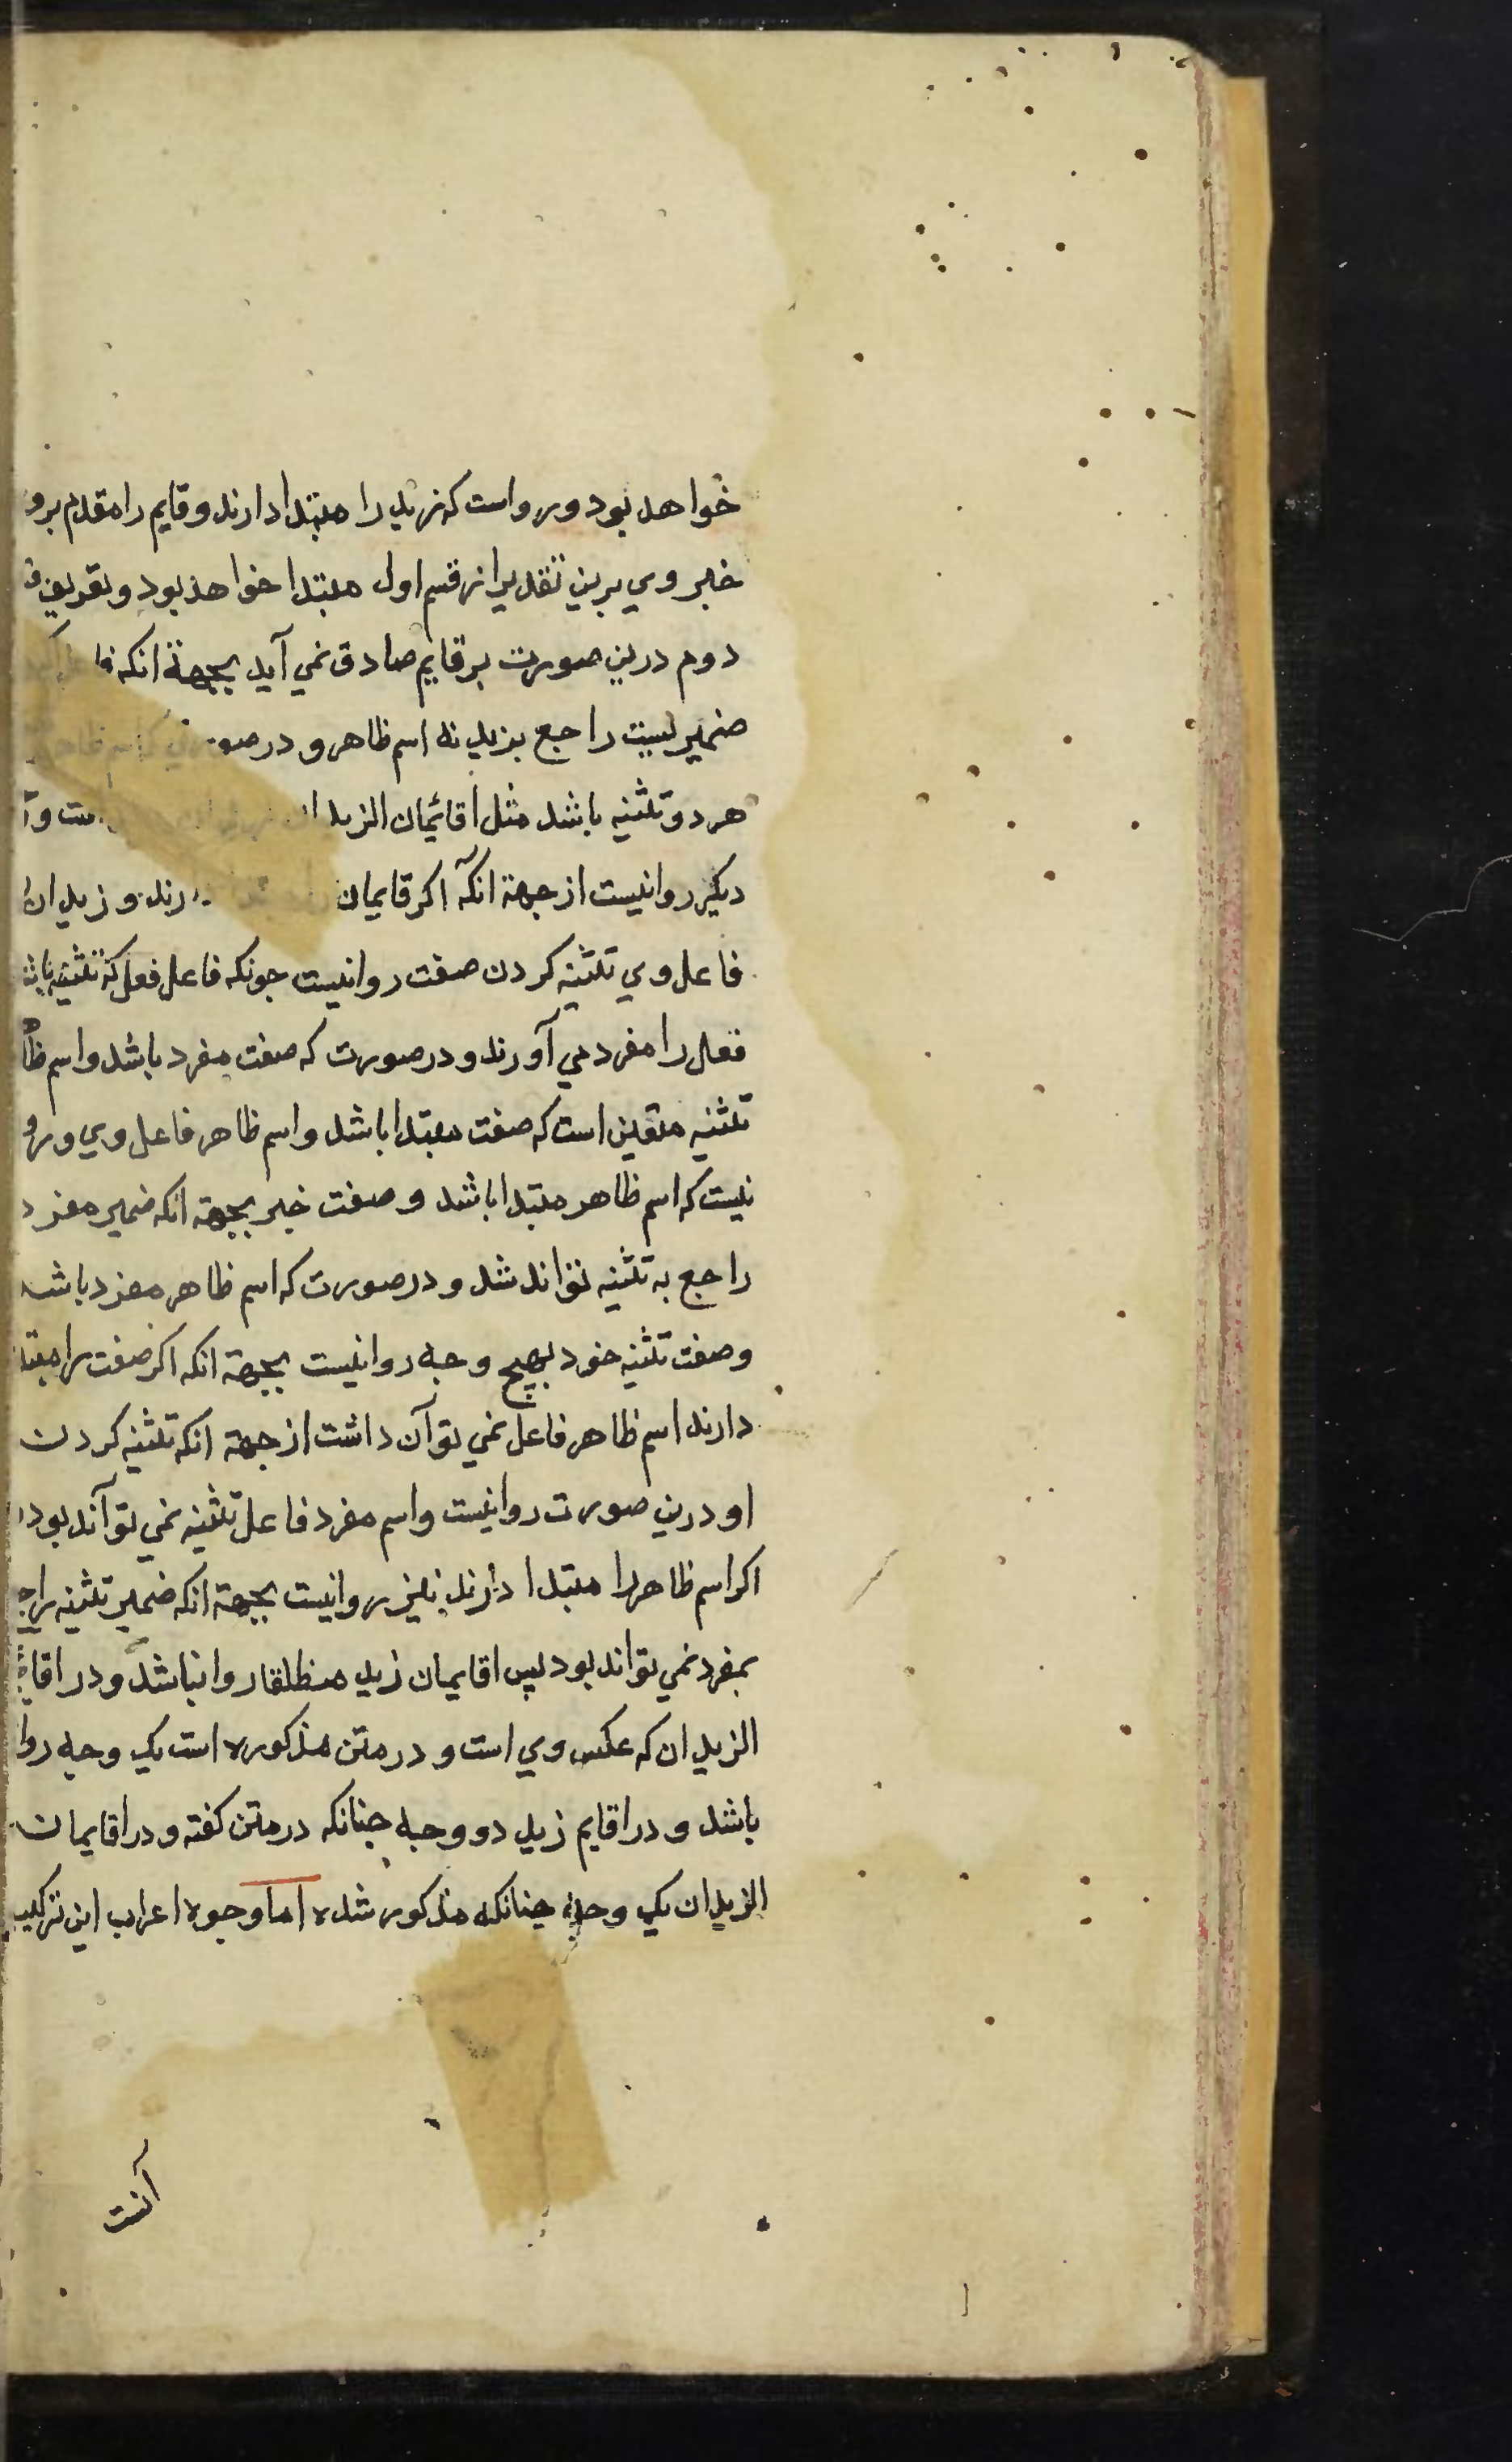 خواهد بود و رواست که زید را مبتدا دارند و قایم را مقدم برو
خبر وی برین تقدیر از قسم اول مبتدا خواهد بود و تعریف
دوم درین صورت بر قایم صادق نمی آید بجهة انکه
ضمیریست راجع بزید نه اسم ظاهر و در
هر دو تثنیه باشد مثل اقائمان الزیدان
دیکر روانیست از جهة انکه اکر قایمان و زیدان
فاعل وی تثنیه کردن صفت روانیست جونکه فاعل فعل که تثنیه
فعل را مفرد می آورند و در صورت که صفت مفرد باشد و اسم
تثنیه متعین است که صفت مبتدا باشد و اسم ظاهر فاعل وی و
نیست که اسم ظاهر مبتدا باشد و صفت خبر بجهة انکه ضمیر مفرد
راجع به تثنیه نتواند شد و در صورت که اسم ظاهر مفرد باشد
و صفت تثنیه خود بهیچ وجه روانیست بجهة انکه اکر صفت را مبتدا
دارند اسم ظاهر فاعل نمی توآن داشت از جهة انکه تثنیه کردن
او درین صورت روانیست و اسم مفرد فاعل تثنیه نمی توآند بود
اکر اسم ظاهر را مبتدا دارند نیز روانیست بجهة انکه ضمیر تثنیه
بمفرد نمی تواند بود پس اقایمان زید منطلقا روا نباشد و در
الزیدان که عکس وی است و در متن مذکوره است یک وجه روا
باشد و در اقایم زید دو وجه جنانکه در متن کفته و در اقایمان
الزیدان یک وجه جنانکه مذکور شده اما وجوه اعراب این ترکیب
آنست